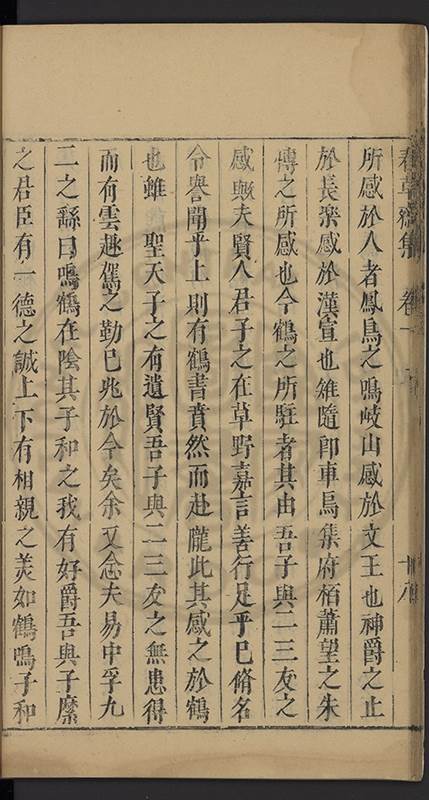 春草齋集 卷一 十八
所感於人者鳳鳥之鳴岐山感於文王也神爵之止
於長樂感於漢宣也雉隨郎車烏集府栢蕭望之朱
慱之所感也今鶴之所駐者其由吾子與二三友之
感與夫賢人君子之在草野嘉言善行足乎已脩名
令譽聞乎上則有鶴書賁然而赴隴此其感之於鶴
也雖 聖天子之有遺賢吾子與二三友之無患得
而有雲趣駕之勤已兆於今矣余又念夫易中孚九
二之繇曰鳴鶴在陰其子和之我有好爵吾與子縻
之君臣有一德之誠上下有相親之美如鶴鳴子和